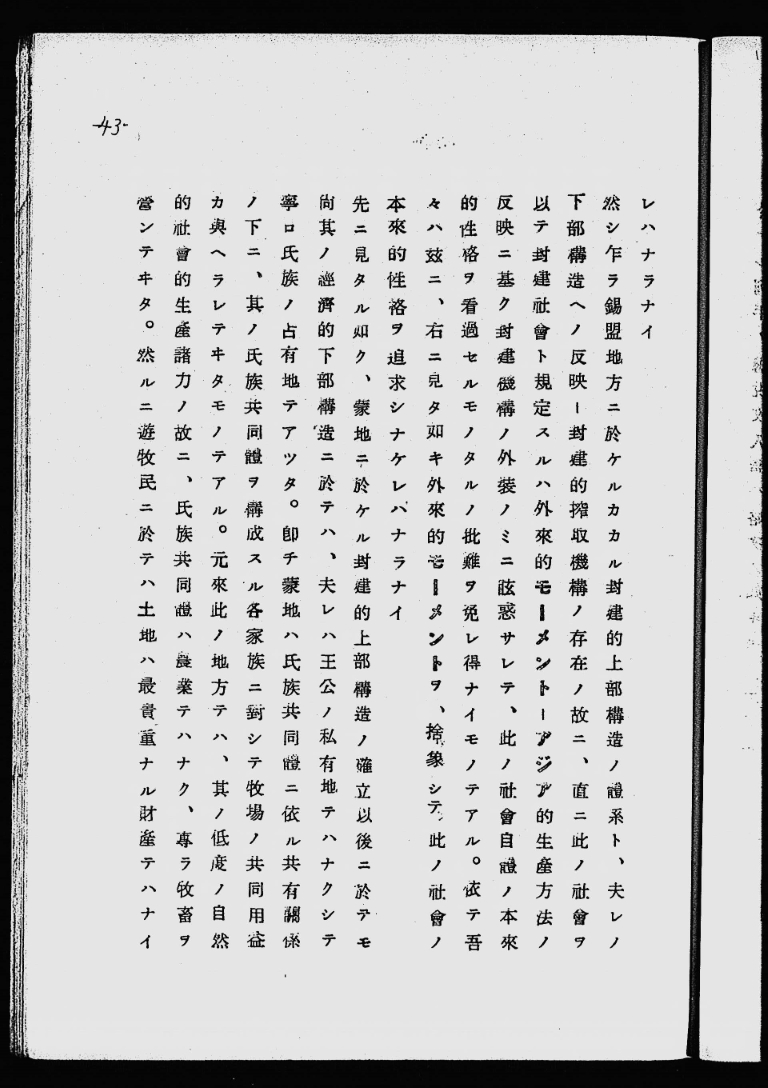 -43-
レハナラナイ
然シ乍ラ錫盟地方ニ於ケルカカル封建的上部構造ノ體系ト、夫レノ
下部構造ヘノ反映ー封建的搾取機構ノ存在ノ故ニ、直ニ此ノ社會ヲ
以テ封建社會ト規定スルハ外來的モーメントーアジア的生產方法ノ
反映ニ基ク封建機構ノ外裝ノミニ眩惑サレテ、此ノ社會自體ノ本來
的性格ヲ看過セルモノタルノ批難ヲ免レ得ナイモノテアル。依テ吾
々ハ玆ニ、右ニ見タ如キ外來的モーメントヲ、捨象シテ、此ノ社會ノ
本來的性格ヲ追求シナケレバナラナイ
先ニ見タル如ク、蒙地ニ於ケル封建的上部構造ノ確立以後ニ於テモ
尙其ノ經濟的下部構造ニ於テハ、夫レハ王公ノ私有地テハナクシテ
寧ロ氏族ノ占有地テアツタ。卽チ蒙地ハ氏族共同體ニ依ル共有關係
ノ下ニ、其ノ氏族共同體ヲ構成スル各家族ニ對シテ牧場ノ共同用益
カ與ヘラレテヰタモノテアル。元來此ノ地方テハ、其ノ低度ノ自然
的社會的生產諸力ノ故ニ、氏族共同體ハ農業テハナク、專ラ牧畜ヲ
營ンテヰタ。然ルニ遊牧民ニ於テハ土地ハ最貴重ナル財產テハナイ